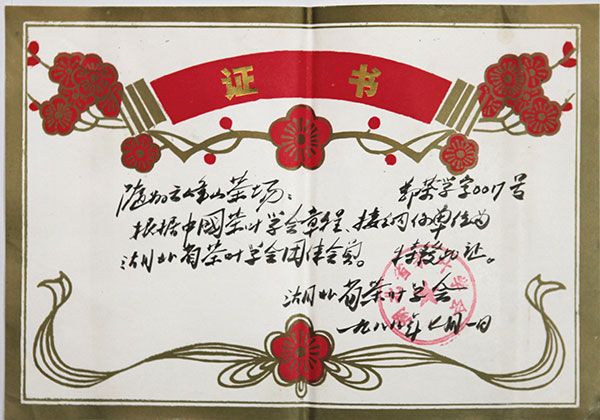 证书
鄂茶学字0017号
云峰山茶场:
根据中国茶叶学会章程、接纳你单位为
湖北省茶叶学会团体会员。特发此证。
湖北省茶叶学会
一九八八年七月一日